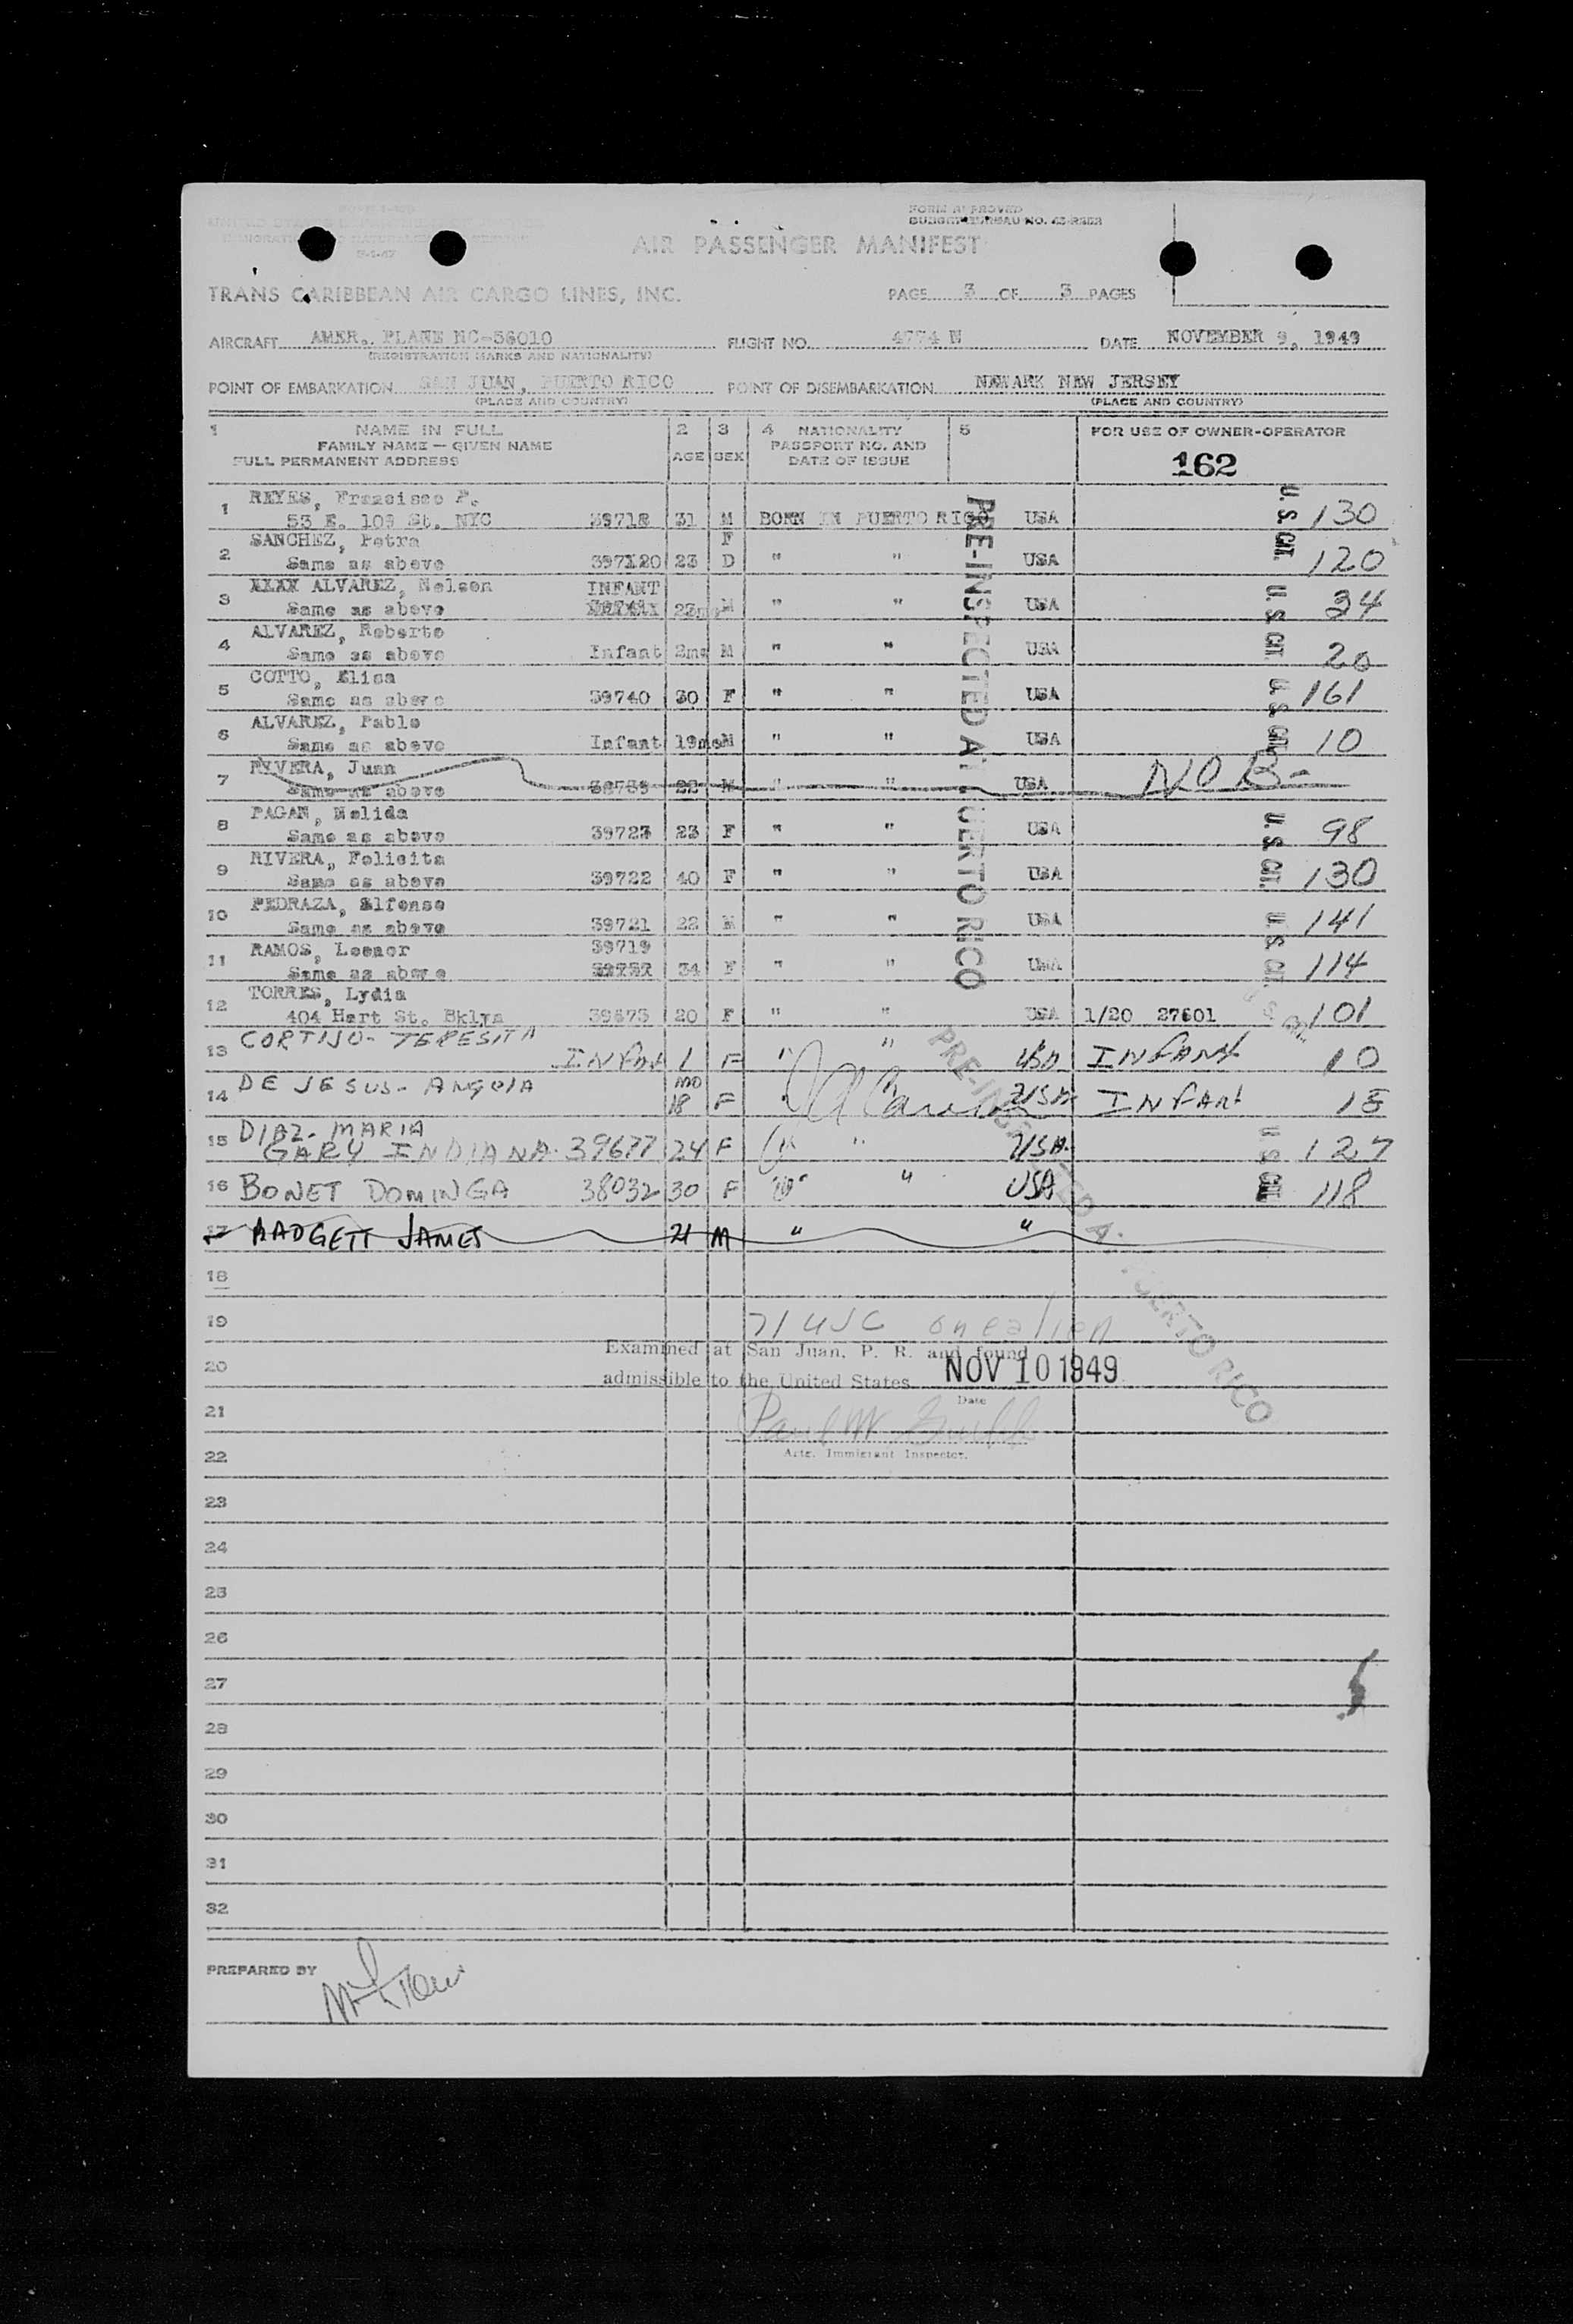 FORM APPROVED
BUDGET BUREAU NO.
AIR PASSENGER MANIFEST
TRANS CARIBBEAN AIR CARGO LINES, INC. PAGE 3 OF 3 PAGES
AIRCRAFT AMER. PLANE NC-36010 FLIGHT NO. 4774 N DATE NOVEMBER 9, 1949
(REGISTRATION MARKS AND NATIONALITY)
POINT OF EMBARKATION SAN JUAN, PUERTO RICO POINT OF DISEMBARKATION NEWARK NEW JERSEY
(PLACE AND COUNTRY) (PLACE AND COUNTRY)
1 NAME IN FULL 2 3 4 NATIONALITY 5 FOR USE OF OWNER-OPERATOR
FAMILY NAME — GIVEN NAME PASSPORT NO. AND
FULL PERMANENT ADDRESS AGE SEX DATE OF ISSUE 162
1 REYES, Francisco P.
53 E. 109 St. NYC 39718 31 M BORN IN PUERTO RICO USA U. S. CIT. 130
2 SANCHEZ, Petra F
Same as above 397120 23 D " " USA 120
3 XXXX ALVAREZ, Nelson INFANT
Same as above 23mo M " " USA U. S. CIT. 34
4 ALVAREZ, Roberto
Same as above Infant 2mo M " " USA 20
5 COTTO, Elisa
Same as above 39740 30 F " " USA U. S. CIT. 161
6 ALVAREZ, Pablo
Same as above Infant 19mo M " " USA 10
7 RIVERA, Juan
Same as above 22 M " " USA NO B-
8 PAGAN, Nelida
Same as above 39723 23 F " " USA U. S. CIT. 98
9 RIVERA, Felicita
Same as above 39722 40 F " " USA 130
10 PEDRAZA, Alfonso
Same as above 39721 22 M " " USA U. S. CIT. 141
11 RAMOS, Leonor 39719
Same as above 34 F " " USA 114
12 TORRES, Lydia
404 Hart St. Bklyn 39673 20 F " " USA 1/20 27601 101
13 CORTIJO- TERESITA
INFANT 1 F " " USA INFANT 10
14 DE JESUS- ANGOIA MO
18 F " " USA INFANT 15
15 DIAZ- MARIA
GARY INDIANA- 39677 24 F " " USA. U. S. CIT. 127
16 BONET DOMINGA 38032 30 F " " USA 118
17 PADGETT JAMES 21 M " "
18
19 71 USC one alien
Examined at San Juan, P. R. and found
20 admissible to the United States NOV 10 1949
Date
21
Actg. Immigrant Inspector.
22
23
24
25
26
27
28
29
30
31
32
PREPARED BY
PRE-INSPECTED AT PUERTO RICO
PRE-INSPECTED AT PUERTO RICO